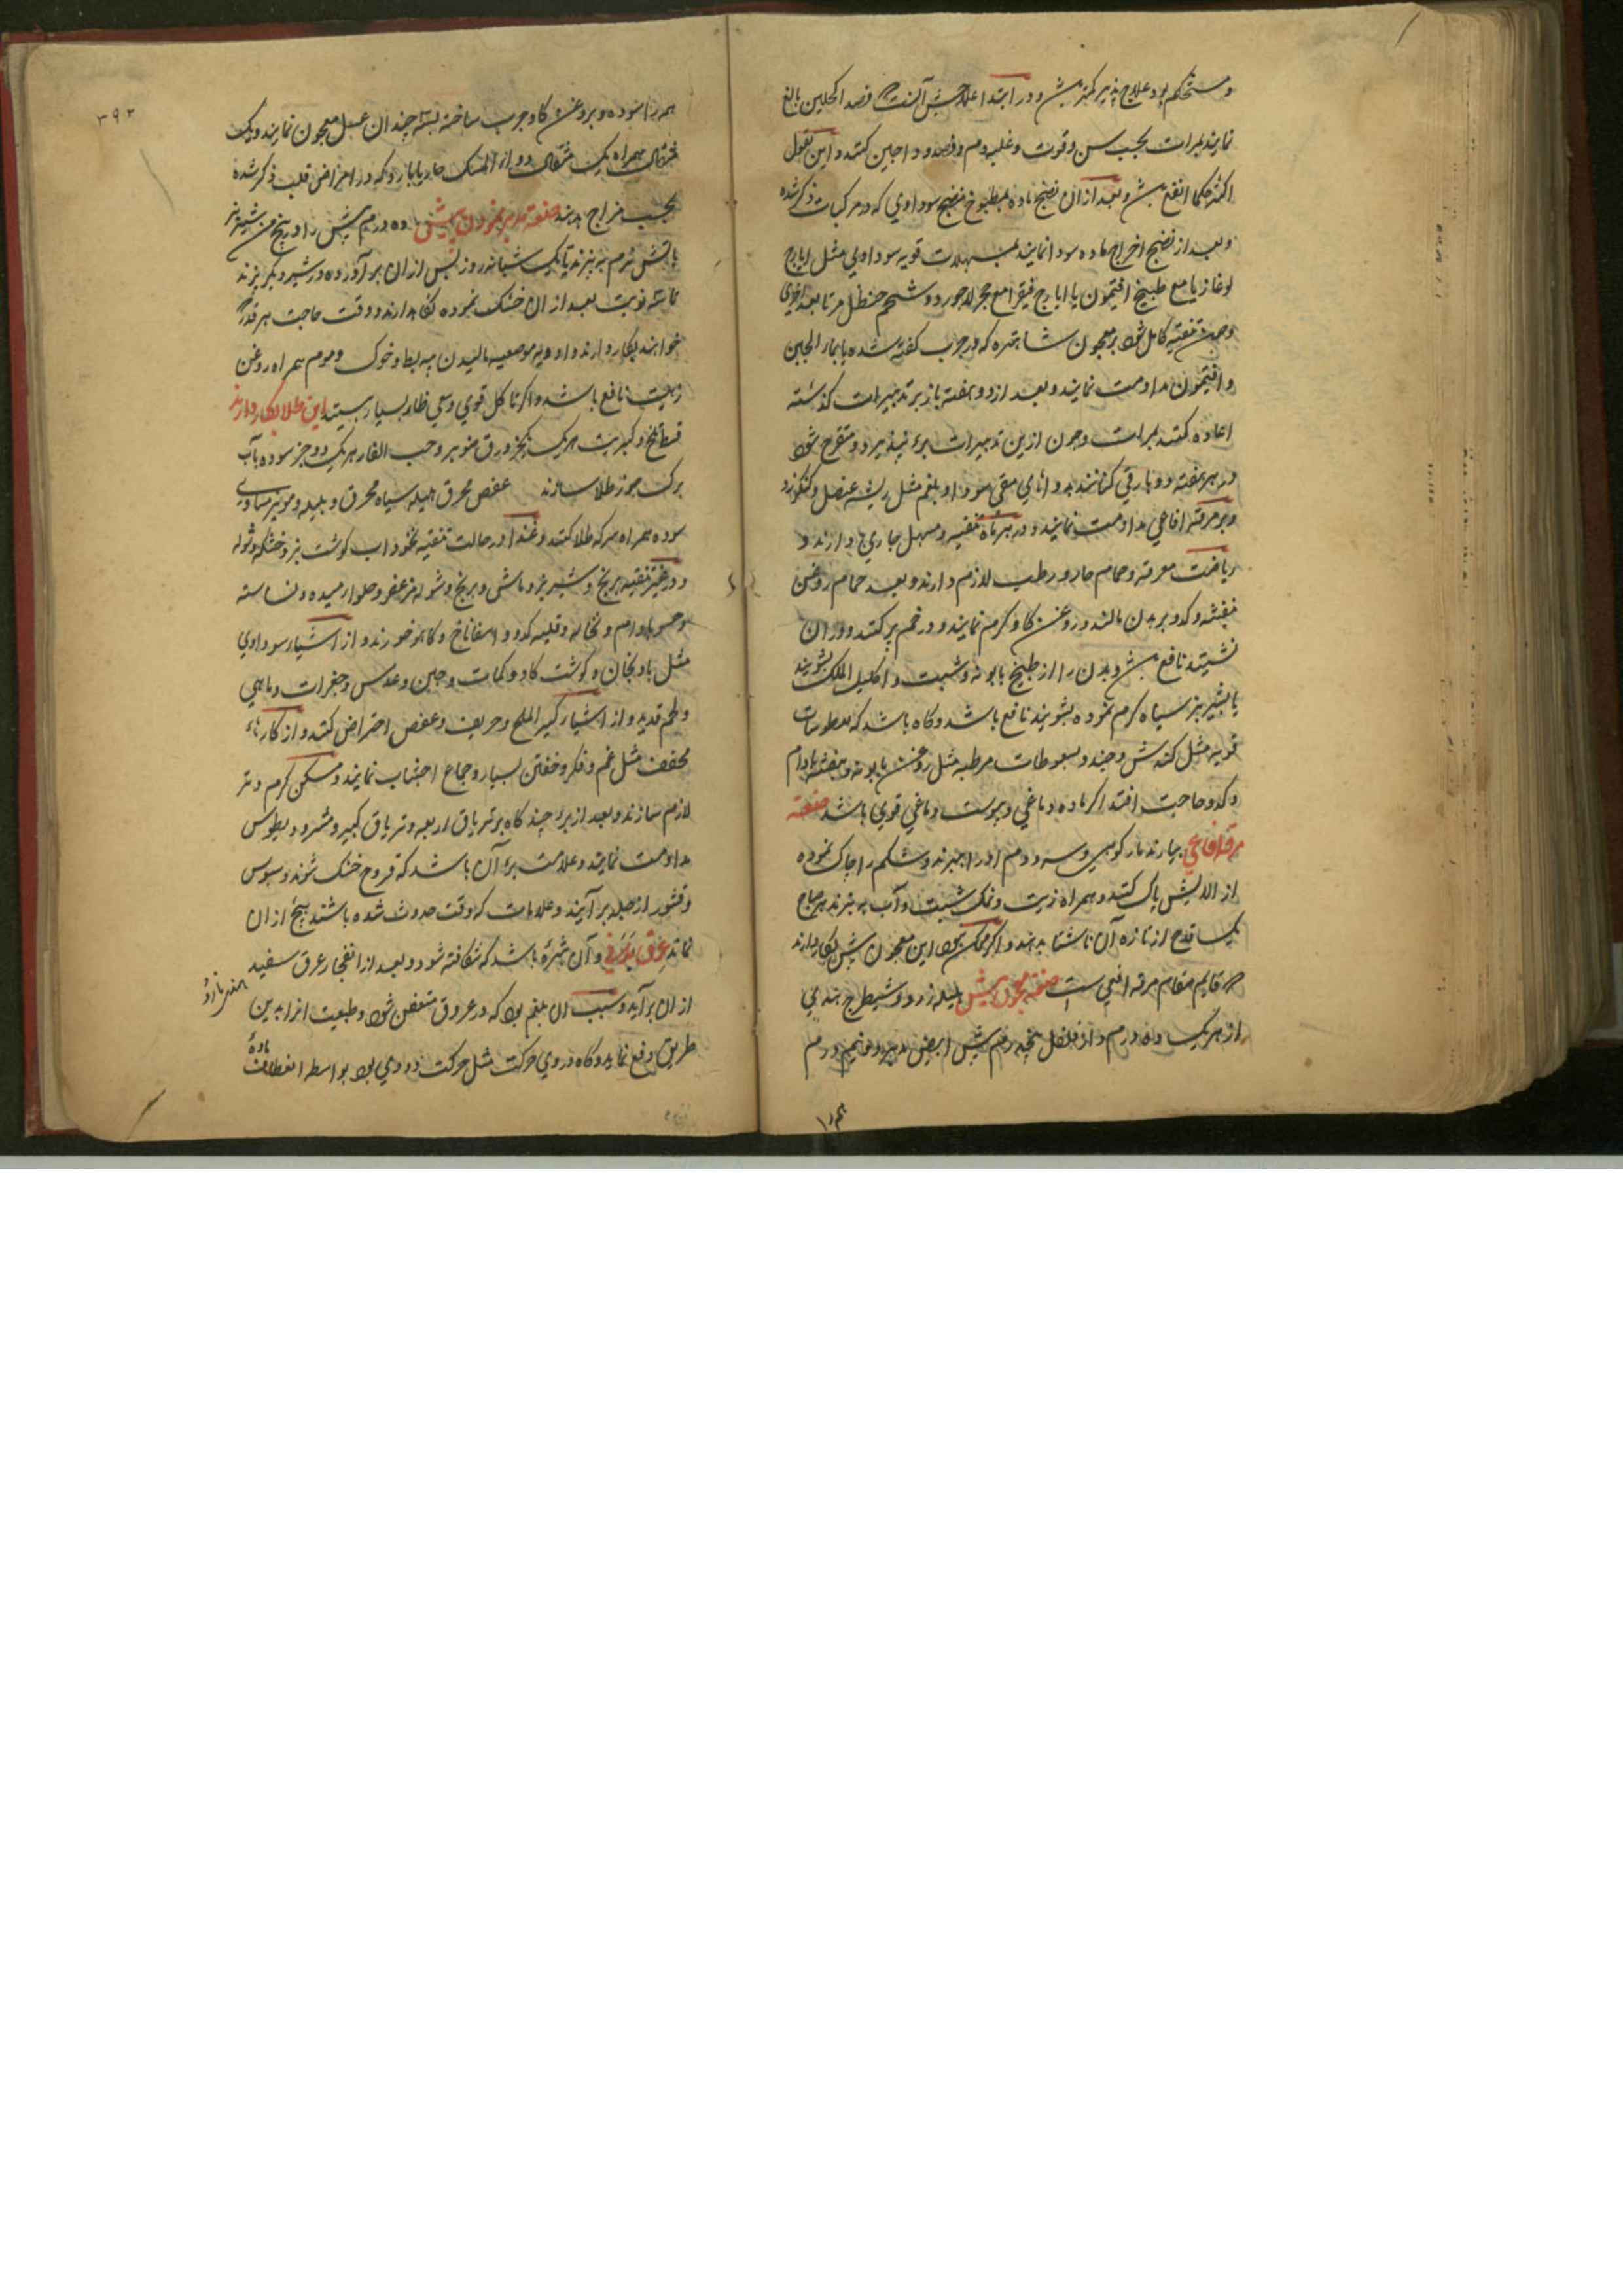 ومستحکم بود علاج پذیر کمتر باشد و در ابتدا علاجش آنست که فصد اکحلین بالغ
نمایند بمرات بحسب سن و قوت و غلبه دم و فصد وداجین کنند و این بقول
اکثر حکما انفع باشد و بعد ازان نضج ماده بمطبوخ منضج سوداوی که در مرکبات ذکر شده
و بعد از نضج اخراج ماده سودا نمایند بمسهلات قویه سوداوی مثل ایارج
لوغازیا مع طبیخ افتیمون یا ایارج فیقرا مع حجر لاجورد و شحم حنظل مرة بعد اخری
و چون تنقیه کامل شود بر معجون شاهتره که در جرب گفته شده یا بماء الجبن
و افتیمون مداومت نمایند و بعد از دو هفته باز بر تدبیرات گذشته
اعاده کنند بمرات و چون ازین تدبیرات برء نپذیرد و متقرح شود
در هر هفته دو بار قی کنانند بدوائی مقی سودا و بلغم مثل ریشه عنصل و کنکرزد
و بر مرقه افاعی مداومت نمایند و در هر ماه تنقیه و مسهل جاری دارند و
ریاضت معرقه و حمام حار و رطب لازم دارند و بعد حمام روغن
بنفشه و کدو بر بدن مالند و روغن کاو کرم نمایند و در خم پر کنند و دران
نشینند نافع باشد و بدن را از طبیخ بابونه و شبت و اکلیل الملک بشویند
یا بشیر بز سیاه کرم نموده بشویند نافع باشد و کاه باشد که بعطوسات
قویه مثل کندش و جند و بسعوطات مرطبه مثل روغن بابونه و بنفشه بادام
و کدو حاجت افتد اکر ماده دماغی و یبوست دماغی قوی باشد صنعة
مرقه افاعی بیارند مار کوهی و سر و دم او را ببرند و شکم را چاک نموده
از الایش پاک کنند و همراه زیت و نمک شبت و آب به پزند هر صباح
یک قدح از تازه آن ناشتا بدهند و اکر ممکن نبود این معجون بیش بکار دارند
که قایم مقام مرقه افعی است صنعة معجون بیش هلیله زرد و شیطرج هندی
از هر یک ده درم دار فلفل پنجدرم بیش ابیض مدبر دو نیم درم
همه را
۳۹۳
همه را سوده و بروغن کاو چرب ساخته بسه چندان عسل معجون نمایند و یک
مثقال همراه یک مثقال دواء المسک حار یا بارد که در امراض قلب ذکر شده
بحسب مزاج بدهند صنعة مدبر نمودن بیش ده درم بیش را در پنج من شیر بز
باتش نرم بپزند تا یک شبانه روز پس ازان بر آورده در شیر دیکر بپزند
تا سه نوبت بعد ازان خشک نموده نکاه دارند و وقت حاجت هر قدر که
خواهند بکار دارند و ادویه موضعیه مالیدن پیه بط و خوک و موم همراه روغن
زیت نافع باشد و اکر تاکل قوی و سعی ظاهر بسیار بینند این طلا بکار دارند
قسط تلخ و کبریت هر یک یکجز ورق صنوبر و حب الغار هر یک دو جز سوده بآب
برک موز طلا سازند عفص محرق هلیله سیاه محرق و بلیله و مویز مساوی
سوده همراه سرکه طلا کنند و غذا در حالت تنقیه نخوداب کوشت بز و خشکه و شوله
و در غیر تنقیه برنج و شیر بز و ماش و برنج و شوله مزعفر و حلوا رمیده و نشاسته
و حسو بادام و نخاله و قلیه کدو و اسفاناخ و کاهو خورند و از اشیاء سوداوی
مثل بادنجان و کوشت کاو و کمات و جبن و عدس و جغرات و ماهی
و لحم قدید و از اشیاء کثیر الملح و حریف و عفص احتراض کنند و از کارهاء
مجفف مثل غم و فکر و خفتن بسیار و جماع اجتناب نمایند و مسکن کرم و تر
لازم سازند و بعد از برء چند کاه بر تریاق اربعه و تریاق کبیر و مثرودیطوس
مداومت نمایند و علامت برء آن باشد که قروح خشک شوند و سبوس
و قشور از جلد بر آیند و علامات که وقت حدوث شده باشند هیچ ازان
نماند عرق مدنی و آن بثرۀ باشد که شکافته شود و بعد از انفجار عرق سفید
هندی نارو
ازان بر آید و سبب ان بلغم بود که در عروق متعفن شود و طبیعت انرا بدین
طریق دفع نماید و کاه در وی حرکت مثل حرکت دودی بود بواسطه انعطاف مادۀ